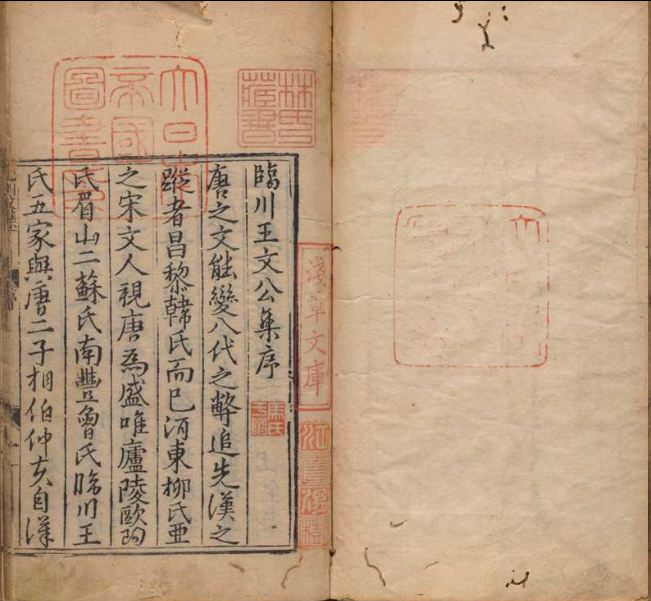 林氏
藏書
大日本
帝國
圖書印
淺草文庫
江雲渭樹
臨川王文公集序
唐之文能變八代之弊追先漢之
蹤者昌黎韓氏而已河東柳氏亞
之宋文人視唐為盛唯廬陵歐阳
氏眉山二蘇氏南豐曾氏臨川王
氏五家與唐二子相伯仲夫自漢